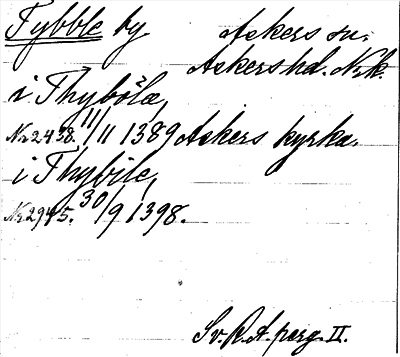 Tybble by Åkers sn.
Åkers hd. N.k.
i Thyböla,
No 2438. 11/11 1389 Åkers kyrka.
i Thybile,
No 2945. 30/9 1398.
Sv. R. A. perg. II.